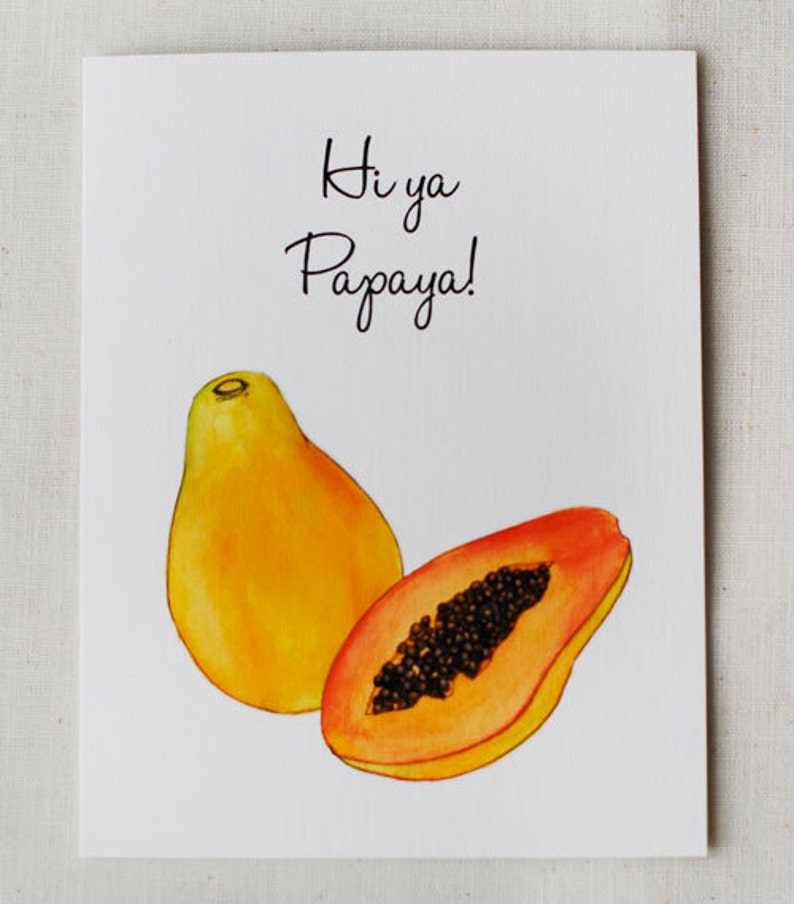 Hi ya
Papaya!